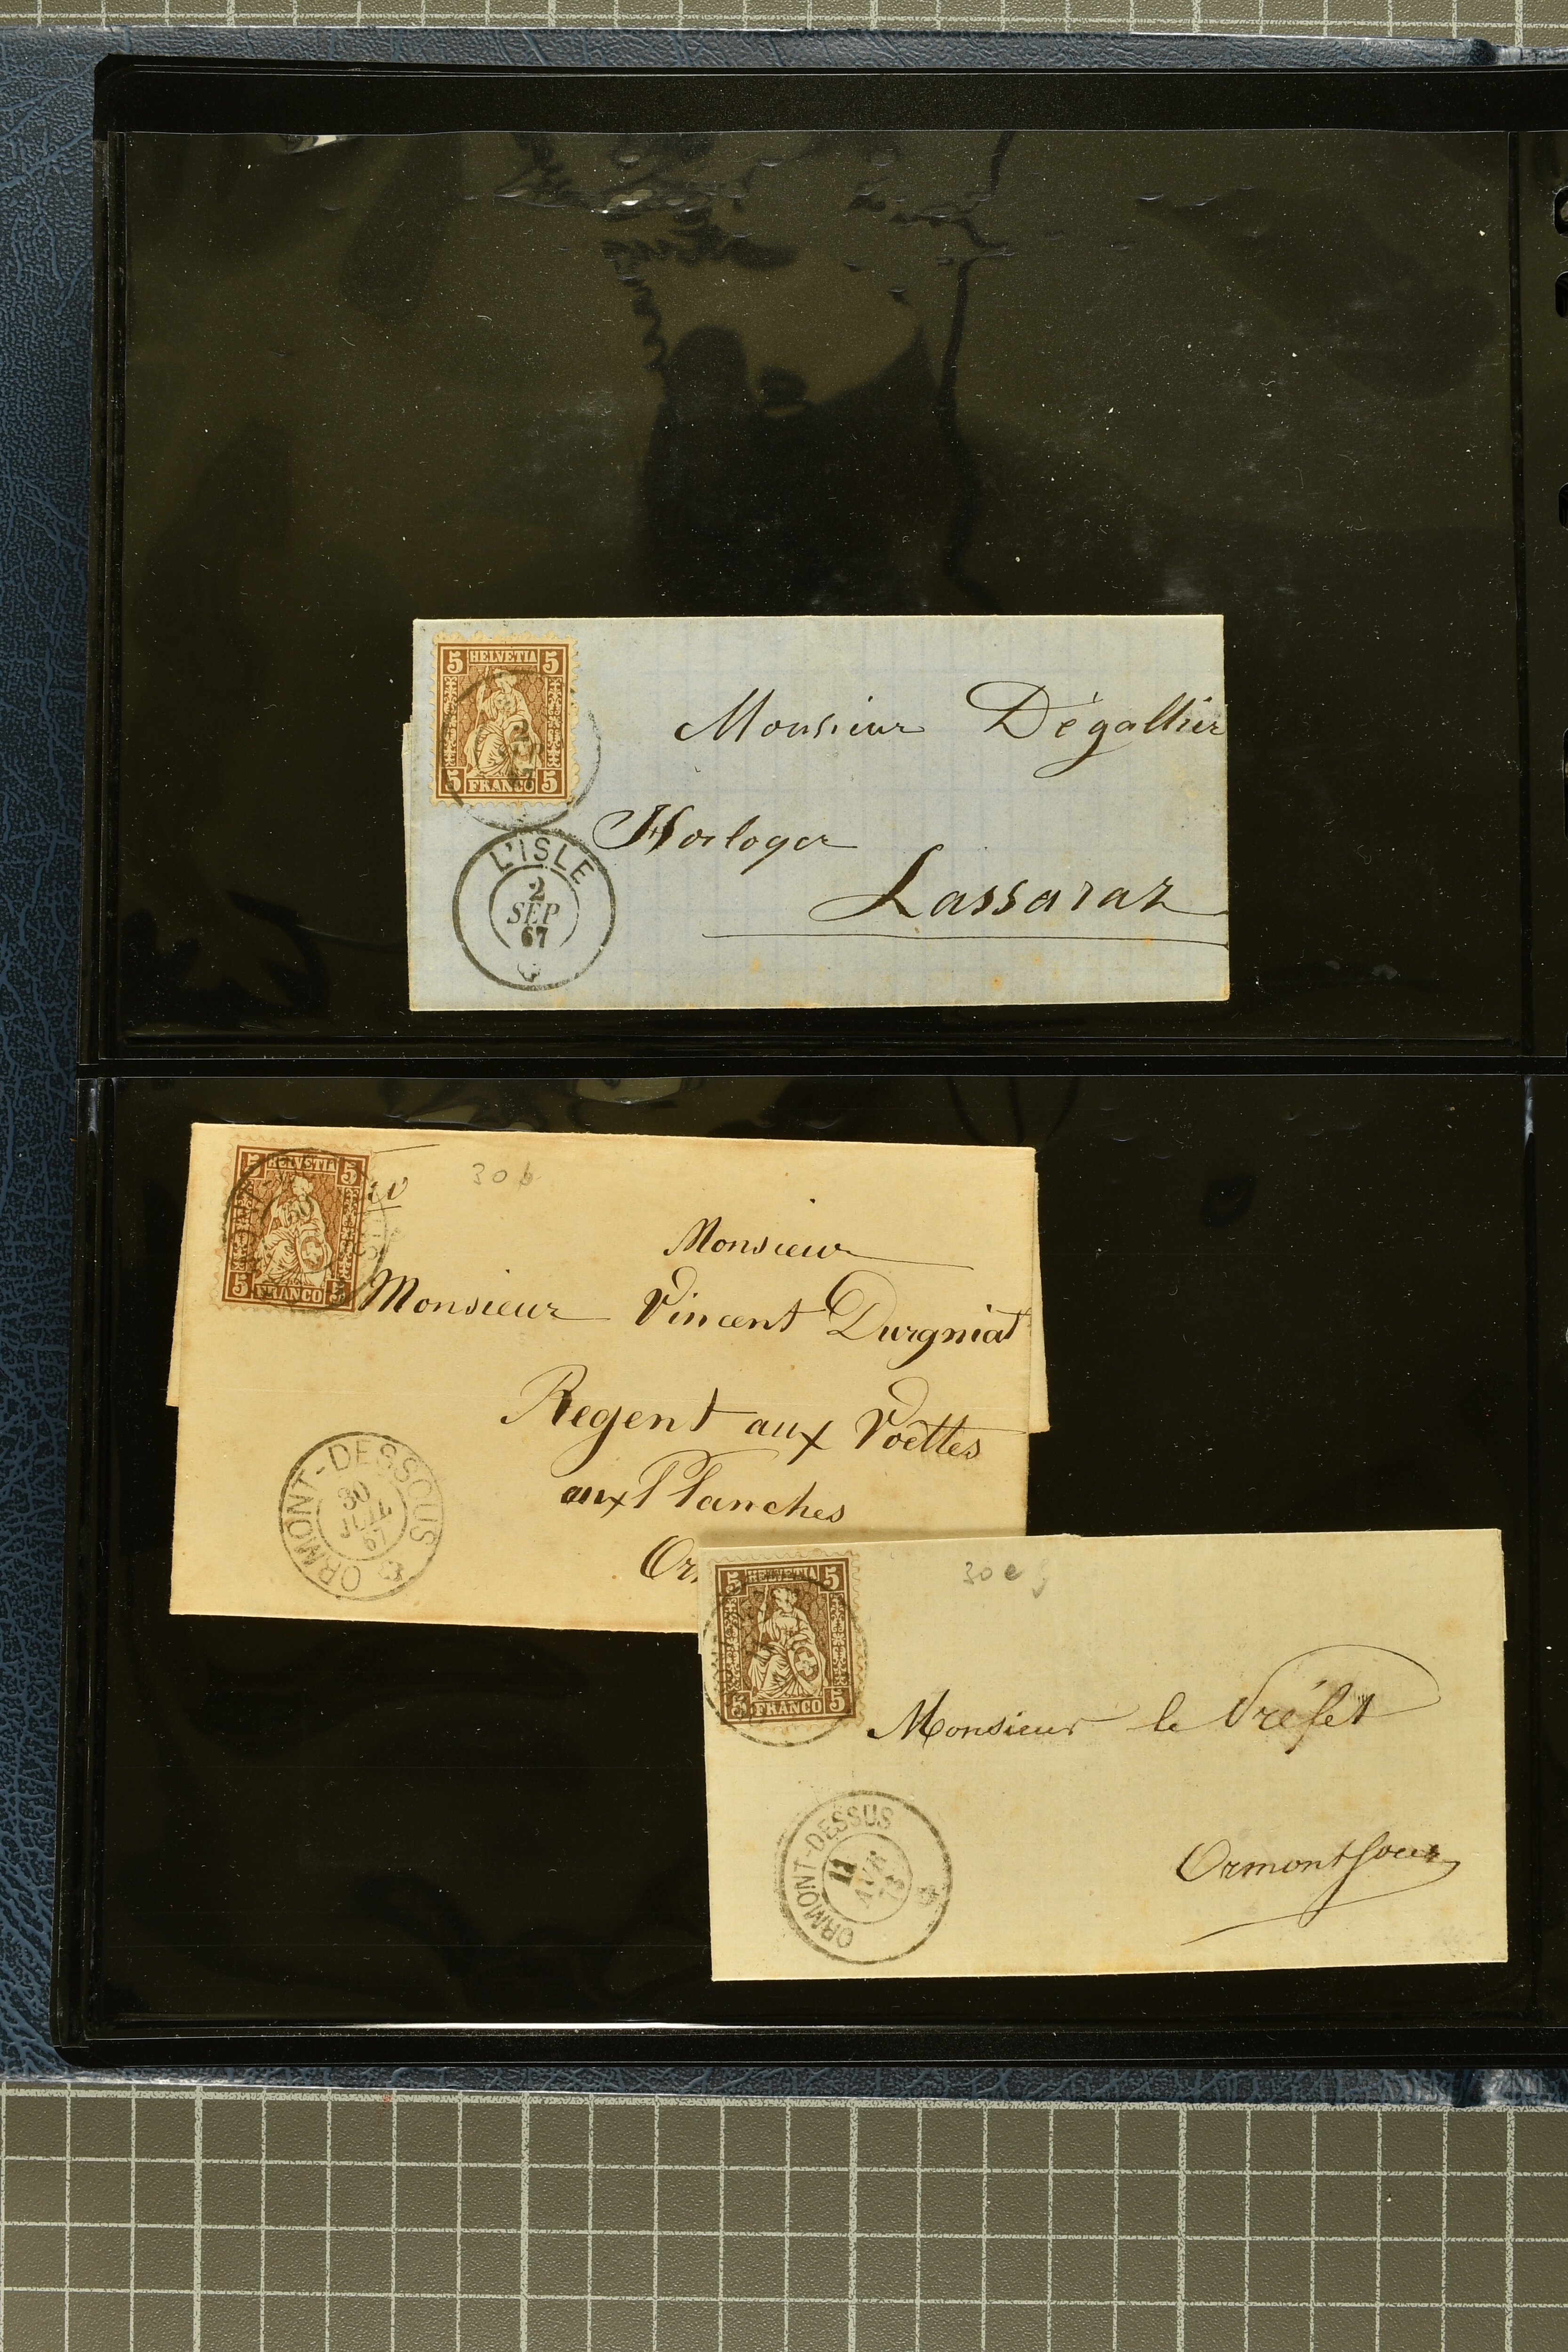 5 HELVETIA 5
5 FRANCO 5
2
67
L'ISLE
2
SEP
67
Monsieur Dégallier
Horloger
Lassaraz
5 HELVETIA 5
5 FRANCO 5
30
30 b
Monsieur
Monsieur Vincent Durgniat
Regent aux Voëttes
aux Planches
Or
ORMONT-DESSOUS
30
JUIL
67
5 HELVETIA 5
5 FRANCO 5
30 e
Monsieur le Préfet
Ormont
ORMONT-DESSUS
11
AVR
73